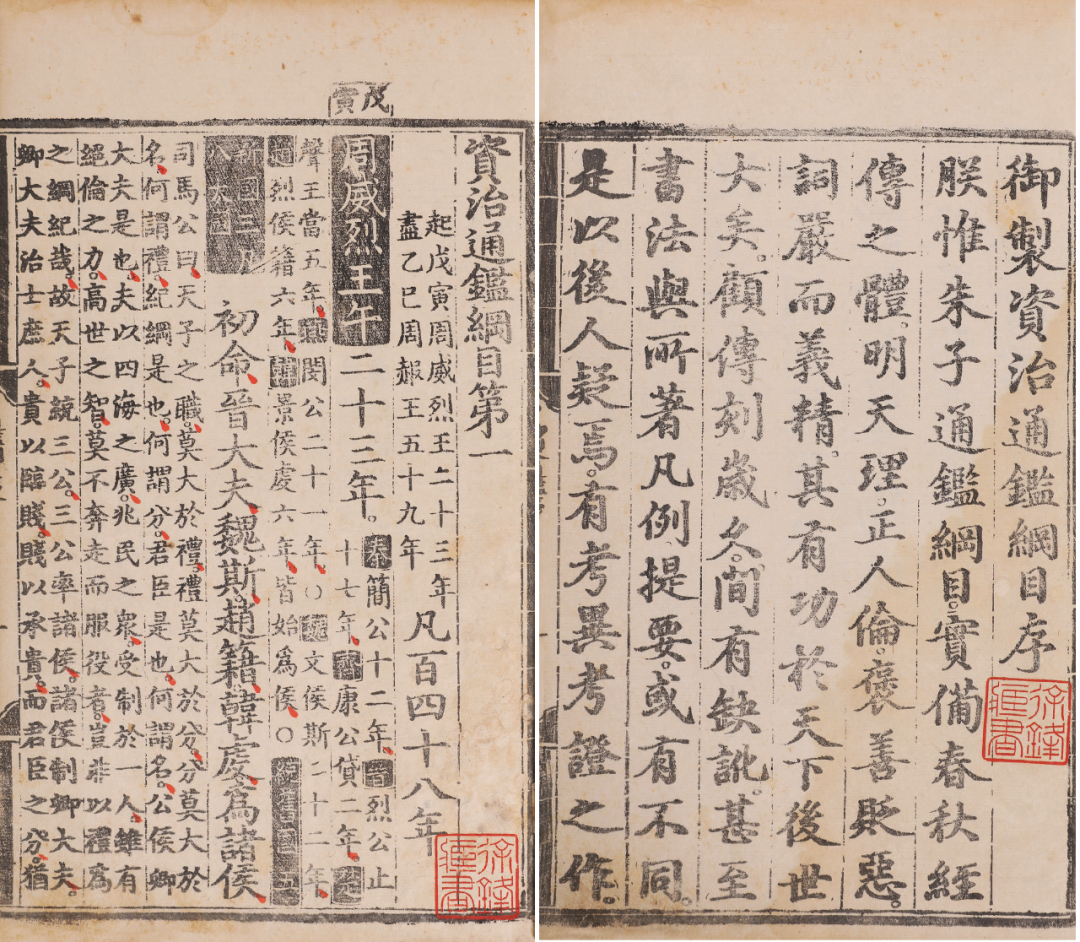 御製資治通鑑綱目序
朕惟朱子通鑑綱目。實備春秋經
傳之體。明天理。正人倫。褒善貶惡。
詞嚴而義精。其有功於天下後世
大矣。顧傳刻歲久。間有缺訛。甚至
書法與所著凡例提要。或有不同。
是以後人疑焉。有考異考證之作。
資治通鑑綱目第一
起戊寅周威烈王二十三年
盡乙巳周赧王五十九年
凡百四十八年
戊寅
周威烈王午二十三年。
秦簡公十二年。晉烈公止
十七年。齊康公貸二年。楚
聲王當五年。燕閔公二十一年。○魏文侯斯二十二年。
趙烈侯籍六年。韓景侯虔六年。皆始爲侯。○
新國三凡
八大國
初命晉大夫魏斯。趙籍。韓虔。爲諸侯。
司馬公曰。天子之職。莫大於禮。禮莫大於分。分莫大於
名。何謂禮。紀綱是也。何謂分。君臣是也。何謂名。公侯卿
大夫是也。夫以四海之廣。兆民之衆。受制於一人。雖有
絕倫之力。高世之智。莫不奔走而服役者。豈非以禮爲
之綱紀哉。故天子統三公。三公率諸侯。諸侯制卿大夫。
卿大夫治士庶人。貴以臨賤。賤以承貴。而君臣之分。猶